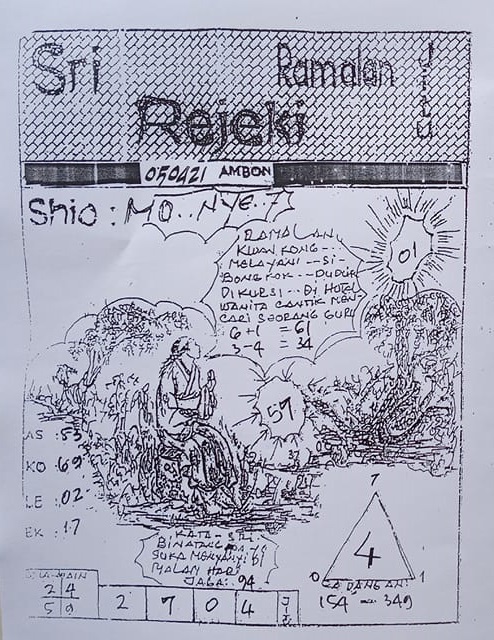 Sri
Ramalan
Jitu
Rejeki
050421 AMBON
Shio : MO..NYE.7
RAMALAN
KWAN KONG--
MELAYANI---SI-
BONGKOK---DUDUK
DI KURSI---DI HOTEL
WANITA CANTIK MEN-
CARI SEORANG GURU
6+1 = 61
3-4 = 34
01
57
37
AS : 53
KO : 69
LE : 02
EK : 17
KATA - SRI
BINATANG
SUKA MENYANYI DI
MALAM HARI
JAGA: 94
7
4
0
1
CADANGAN
154 = 349
2 4
5 9
2 7 0 4